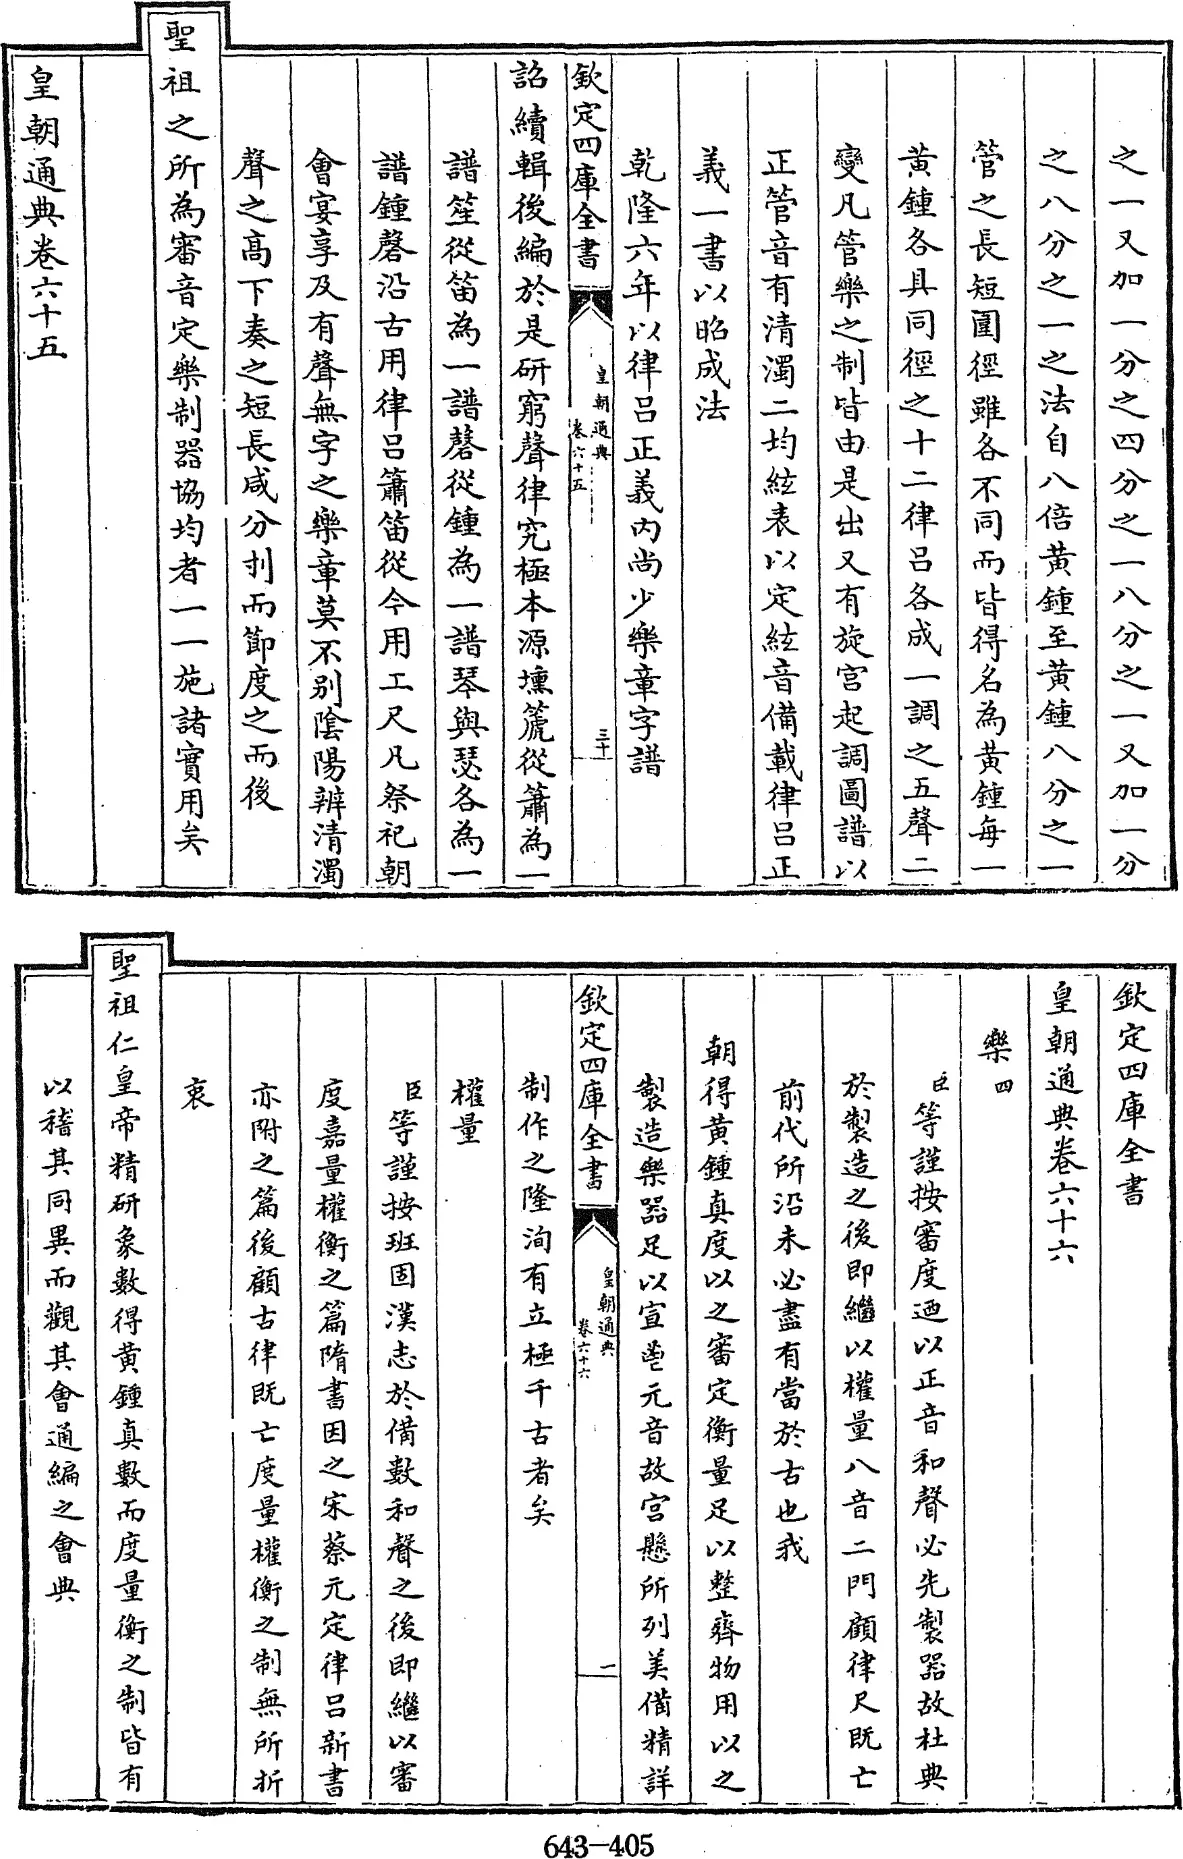 之一又加一分之四分之一八分之一又加一分
之八分之一之法自八倍黄鍾至黄鍾八分之一
管之長短圍徑雖各不同而皆得名為黄鍾每一
黄鍾各具同徑之十二律呂各成一調之五聲二
變凡管樂之制皆由是出又有旋宮起調圖譜以
正管音有清濁二均絃表以定絃音備載律呂正
義一書以昭成法
乾隆六年以律呂正義内尚少樂章字譜
欽定四庫全書
皇朝通典
卷六十五
三十
詔續輯後編於是研窮聲律究極本源壎箎從簫為一
譜笙從笛為一譜磬從鍾為一譜琴與瑟各為一
譜鍾磬沿古用律呂簫笛從今用工尺凡祭祀朝
會宴享及有聲無字之樂章莫不别陰陽辨清濁
聲之髙下奏之短長咸分刌而節度之而後
聖祖之所為審音定樂制器協均者一一施諸實用矣
皇朝通典卷六十五
欽定四庫全書
皇朝通典卷六十六
樂四
臣等謹按審度迺以正音和聲必先製器故杜典
於製造之後即繼以權量八音二門顧律尺既亡
前代所沿未必盡有當於古也我
朝得黄鍾真度以之審定衡量足以整齊物用以之
製造樂器足以宣邕元音故宮懸所列美備精詳
欽定四庫全書
皇朝通典
卷六十六
一
制作之隆洵有立極千古者矣
權量
臣等謹按班固漢志於備數和聲之後即繼以審
度嘉量權衡之篇隋書因之宋蔡元定律呂新書
亦附之篇後顧古律既亡度量權衡之制無所折
衷
聖祖仁皇帝精研象數得黄鍾真數而度量衡之制皆有
以稽其同異而觀其會通編之會典
643-405